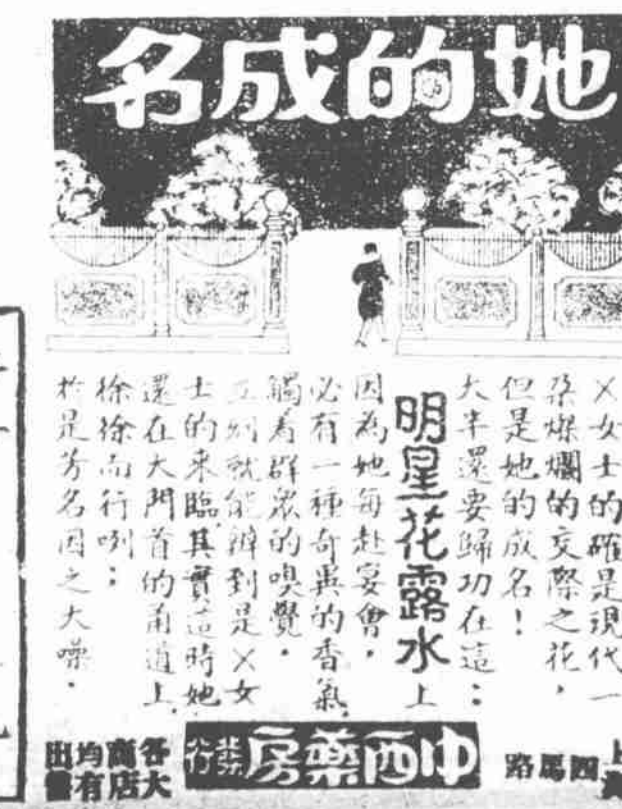 她的成名
×女士的確是現代一
朵燦爛的交際之花，
但是她的成名！
大半還要歸功在這：
明星花露水上
因為她每赴宴會，
必有一種奇異的香氣，
觸着群眾的嗅覺．
立刻就能辨到是×女
士的來臨，其實這時她
還在大門首的甬道上，
徐徐而行咧；
於是芳名因之大噪．
上海四馬路
中西藥房發行
各大商店均有出售